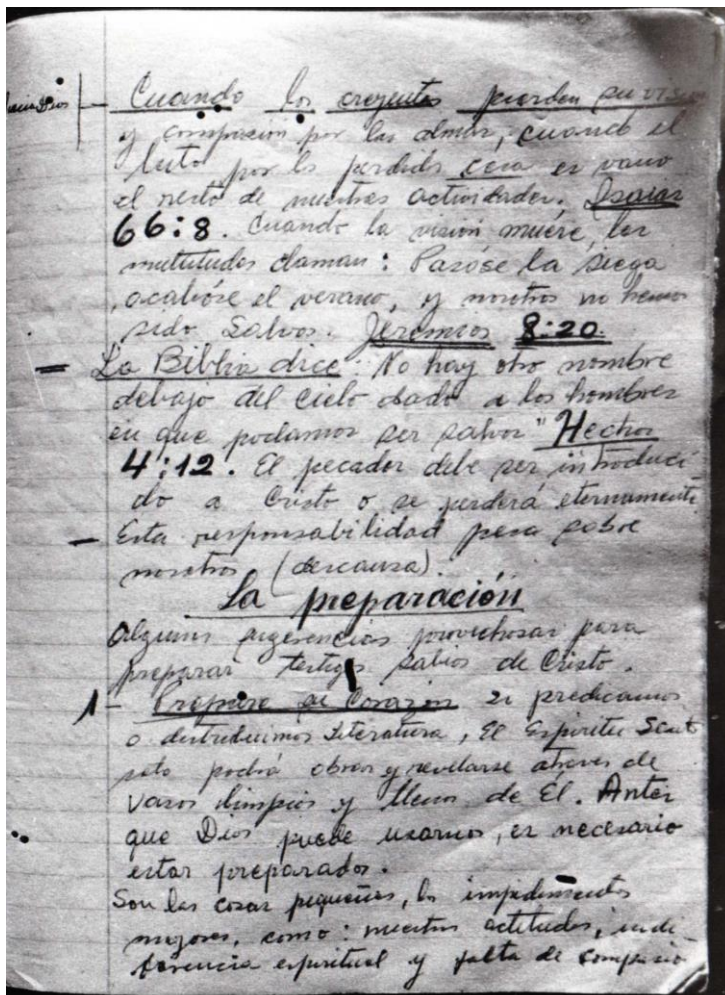 Cuando los creyentes pierden su visión
y compasión por las almas, cuando el
luto por los perdidos cesa es vano
el resto de nuestras actividades. Isaias
66:8. Cuando la visión muére, las
multitudes claman: Pasóse la siega
, acabóse el verano, y nosotros no hemos
sido Salvos. Jeremias 8:20.
La Biblia dice: No hay otro nombre
debajo del cielo dado a los hombres
en que podamos ser salvos" Hechos
4:12. El pecador debe ser introduci-
do a Cristo o se perderá eternamente.
Esta responsabilidad pesa sobre
nosotros (descansa).
La preparación
Algunas sugerencias provechosas para
preparar testigos sabios de Cristo.
1- Prepare su Corazón si predicamos
o distribuimos Literatura, El Espiritu Santo
solo podrá obrar y revelarse atraves de
Vasos limpios y llenos de Él. Antes
que Dios puede usarnos, es necesario
estar preparados.
Son las cosas pequeñas, los impedimentos
mayores, como: nuestras actitudes, indi-
ferencia espiritual y falta de compasión